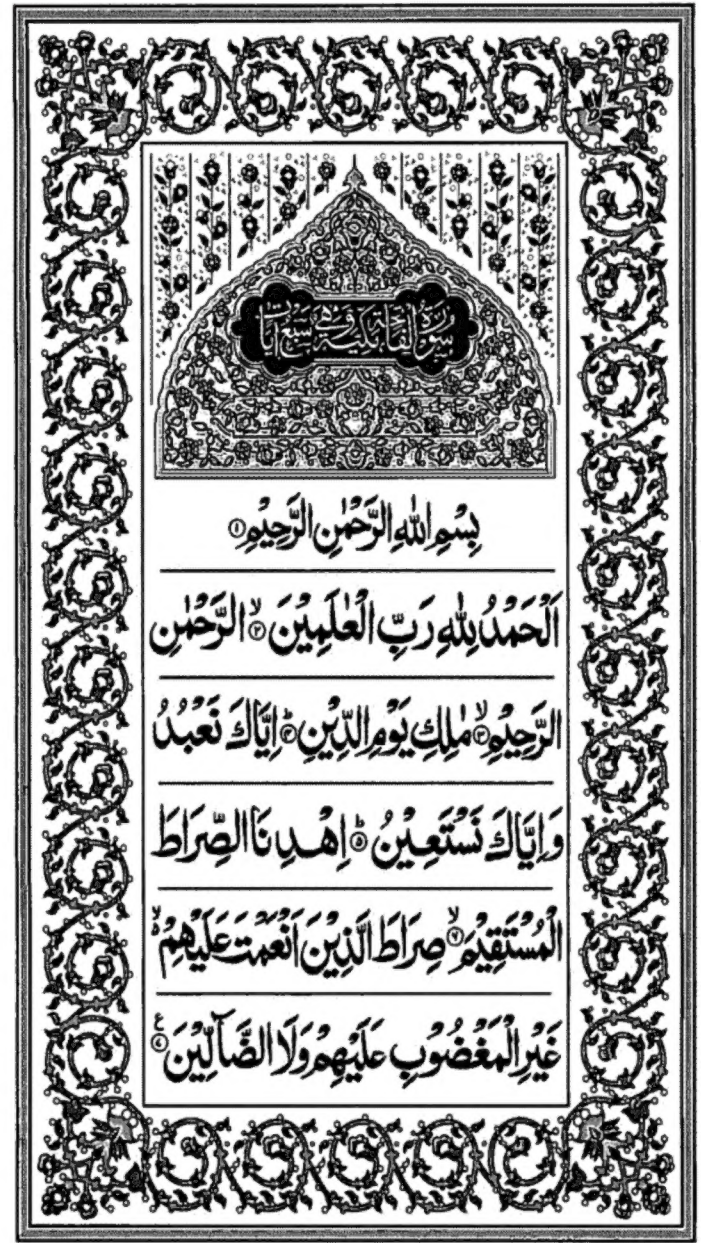 سورة الفاتحة مكية وهي سبع ايات
بِسْمِ اللّٰهِ الرَّحْمٰنِ الرَّحِيْمِ ۝۱
اَلْحَمْدُ لِلّٰهِ رَبِّ الْعٰلَمِيْنَ ۙ۝۲ الرَّحْمٰنِ
الرَّحِيْمِ ۙ۝۳ مٰلِكِ يَوْمِ الدِّيْنِ ؕ۝۴ اِيَّاكَ نَعْبُدُ
وَاِيَّاكَ نَسْتَعِيْنُ ؕ۝۵ اِهْدِنَا الصِّرَاطَ
الْمُسْتَقِيْمَ ۙ۝۶ صِرَاطَ الَّذِيْنَ اَنْعَمْتَ عَلَيْهِمْ ۙ۬
غَيْرِ الْمَغْضُوْبِ عَلَيْهِمْ وَلَا الضَّآلِّيْنَ ۝۷ ع